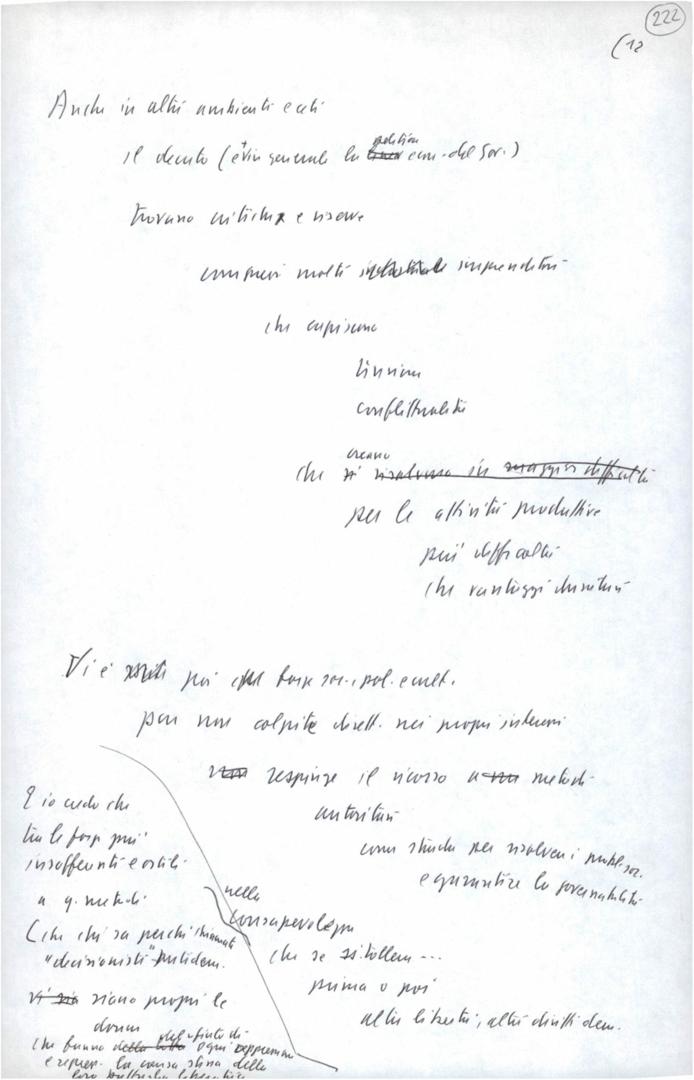 222
(12
Anche in altri ambienti e ceti
politica
il decreto (e in generale la linea econ. del Gov.)
trovano critiche e riserve
compresi molti industriali imprenditori
che capiscono
conflittualità
creano
che si risolvono in maggiori difficoltà
per le attività produttive
più difficoltà
che vantaggi duraturi
Vi è poi forze soc., pol. e cult.
pur non colpite dirett. nei propri interessi
respinge il ricorso a metodi
autoritari
come strada per risolvere i probl. soc.
e garantire la governabilità
nella
consapevolezza
che se si tollera ...
prima o poi
altre libertà, altri diritti dem.
E io credo che
tra le forze più
insofferenti e ostili
a q. metodi
(che chi sa perché chiamati
"decisionisti"
vi sia siano proprio le
donne
che fanno della lotta del rifiuto di ogni oppressione
e repress. la causa stessa della
loro battaglia